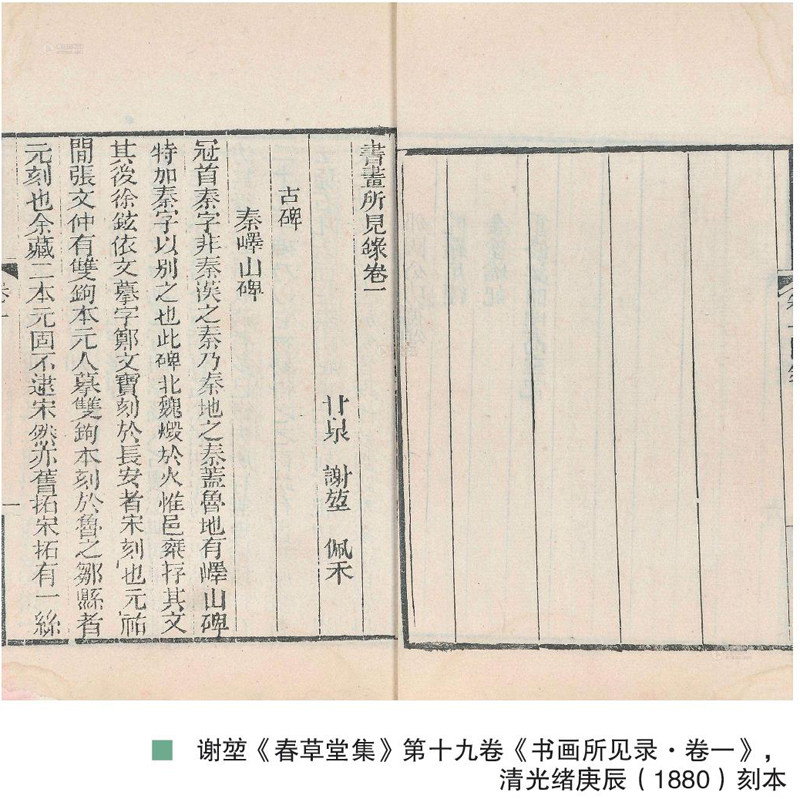 書畫所見錄卷一
甘泉 謝堃 佩禾
古碑
秦嶧山碑
冠首秦字非秦漢之秦乃秦地之秦蓋魯地有嶧山碑
特加秦字以別之也此碑北魏燬於火惟邑椉存其文
其後徐鉉依文摹字鄭文寶刻於長安者宋刻也元祐
閒張文仲有雙鉤本元人摹雙鉤本刻於魯之鄒縣者
元刻也余藏二本元固不逮宋然亦舊拓宋拓有一絲
卷一
谢堃《春草堂集》第十九卷《书画所见录·卷一》，
清光绪庚辰（1880）刻本